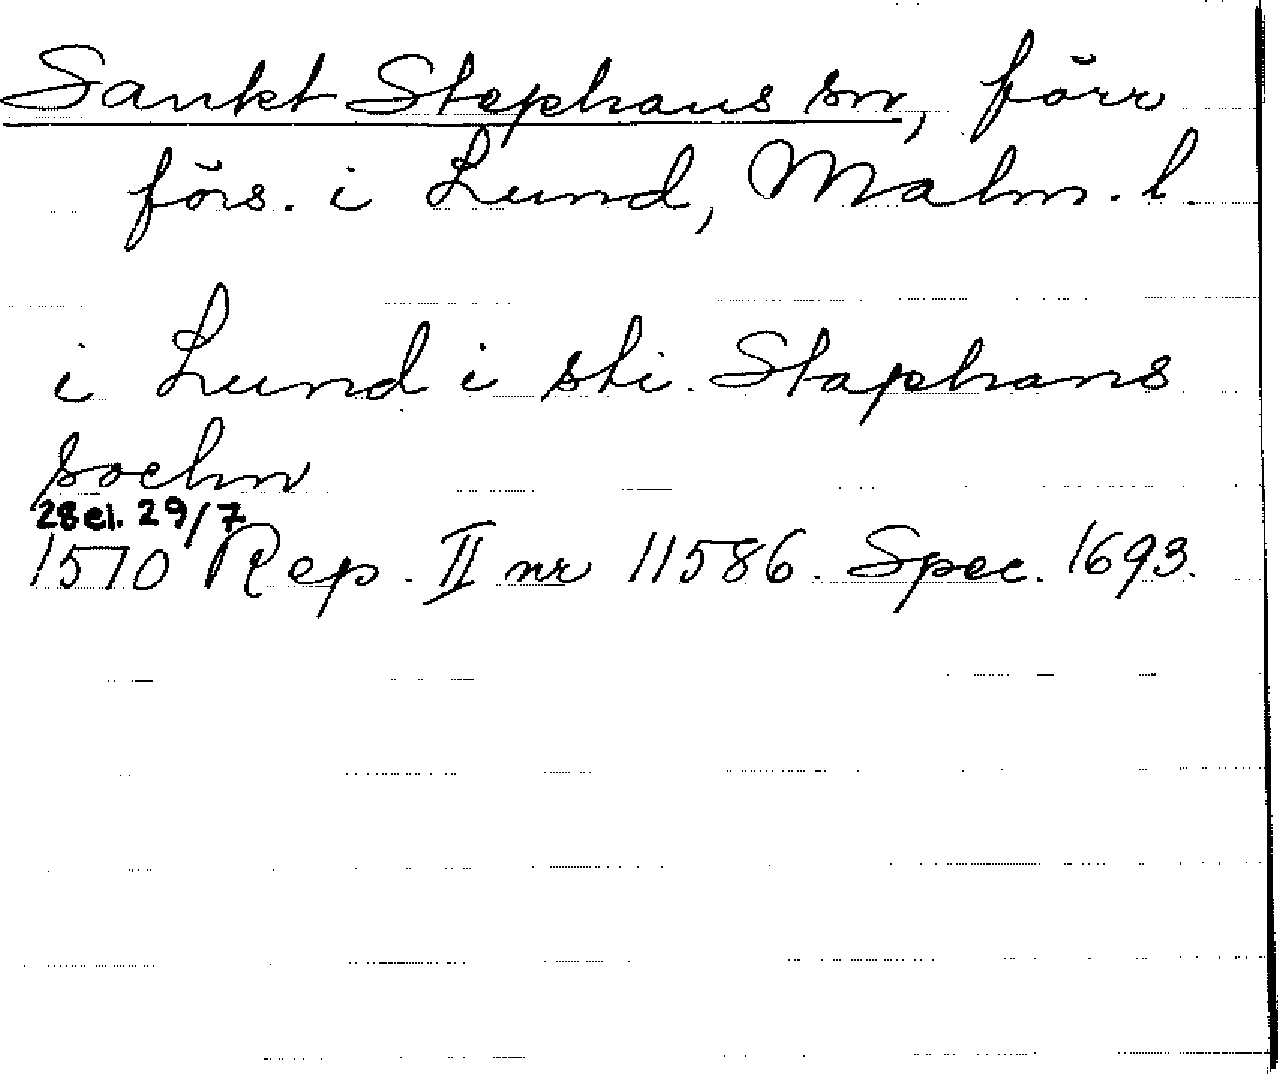 Sankt Stephans sn, förr
förs. i Lund, Malm. l.
i Lund i sti. Staphans
soehn
28 el. 29/7
1510 Rep. II nr 11586. Spec. 1693.